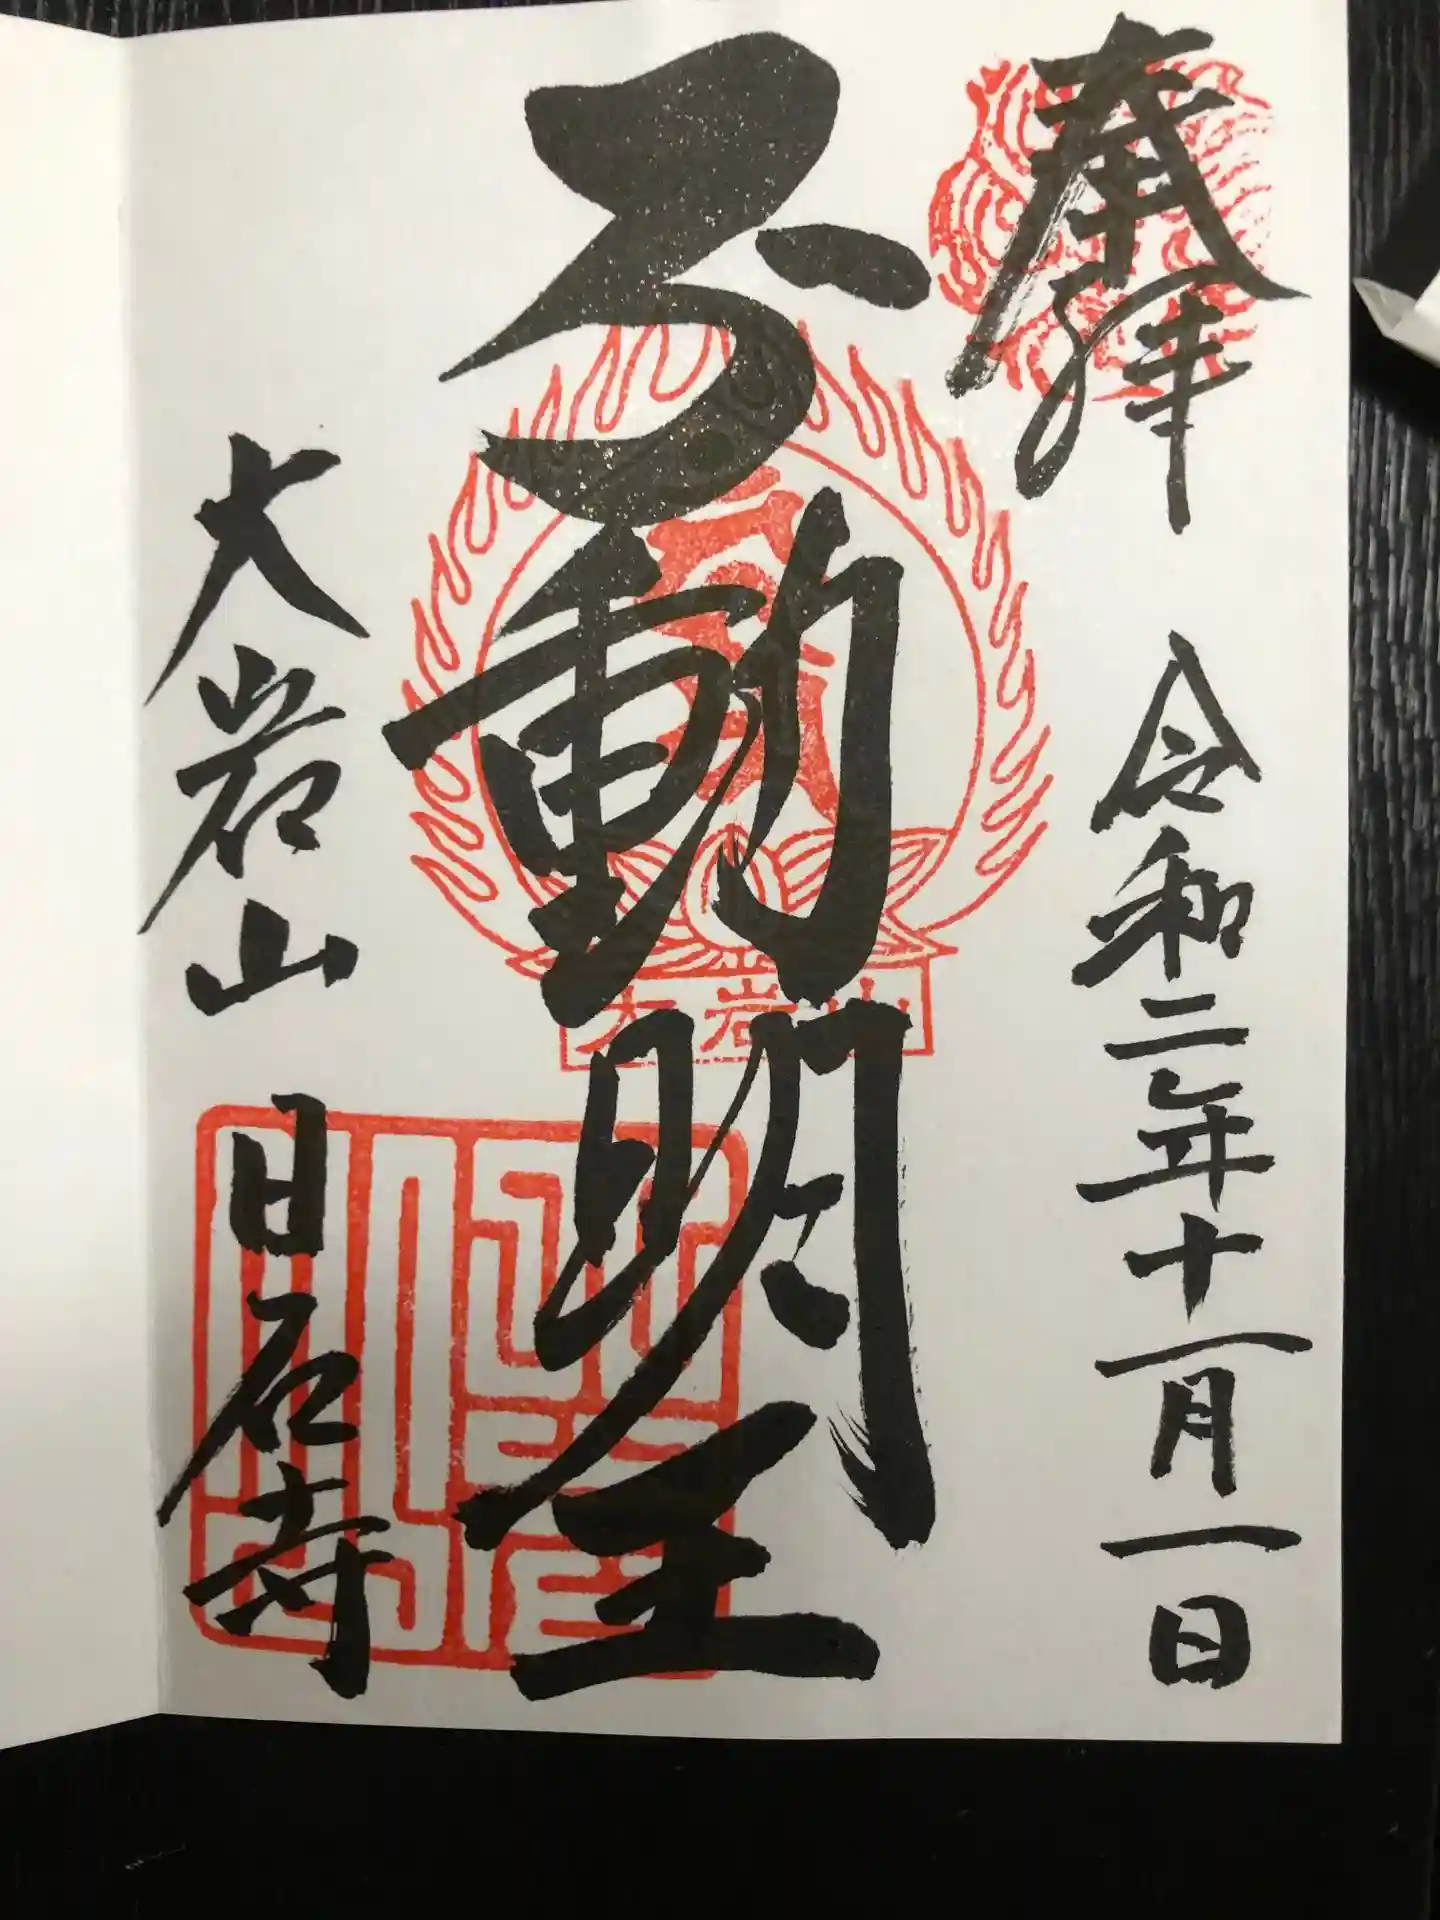 奉拝
令和二年十一月一日
不動明王
大岩山
大岩山 日石寺